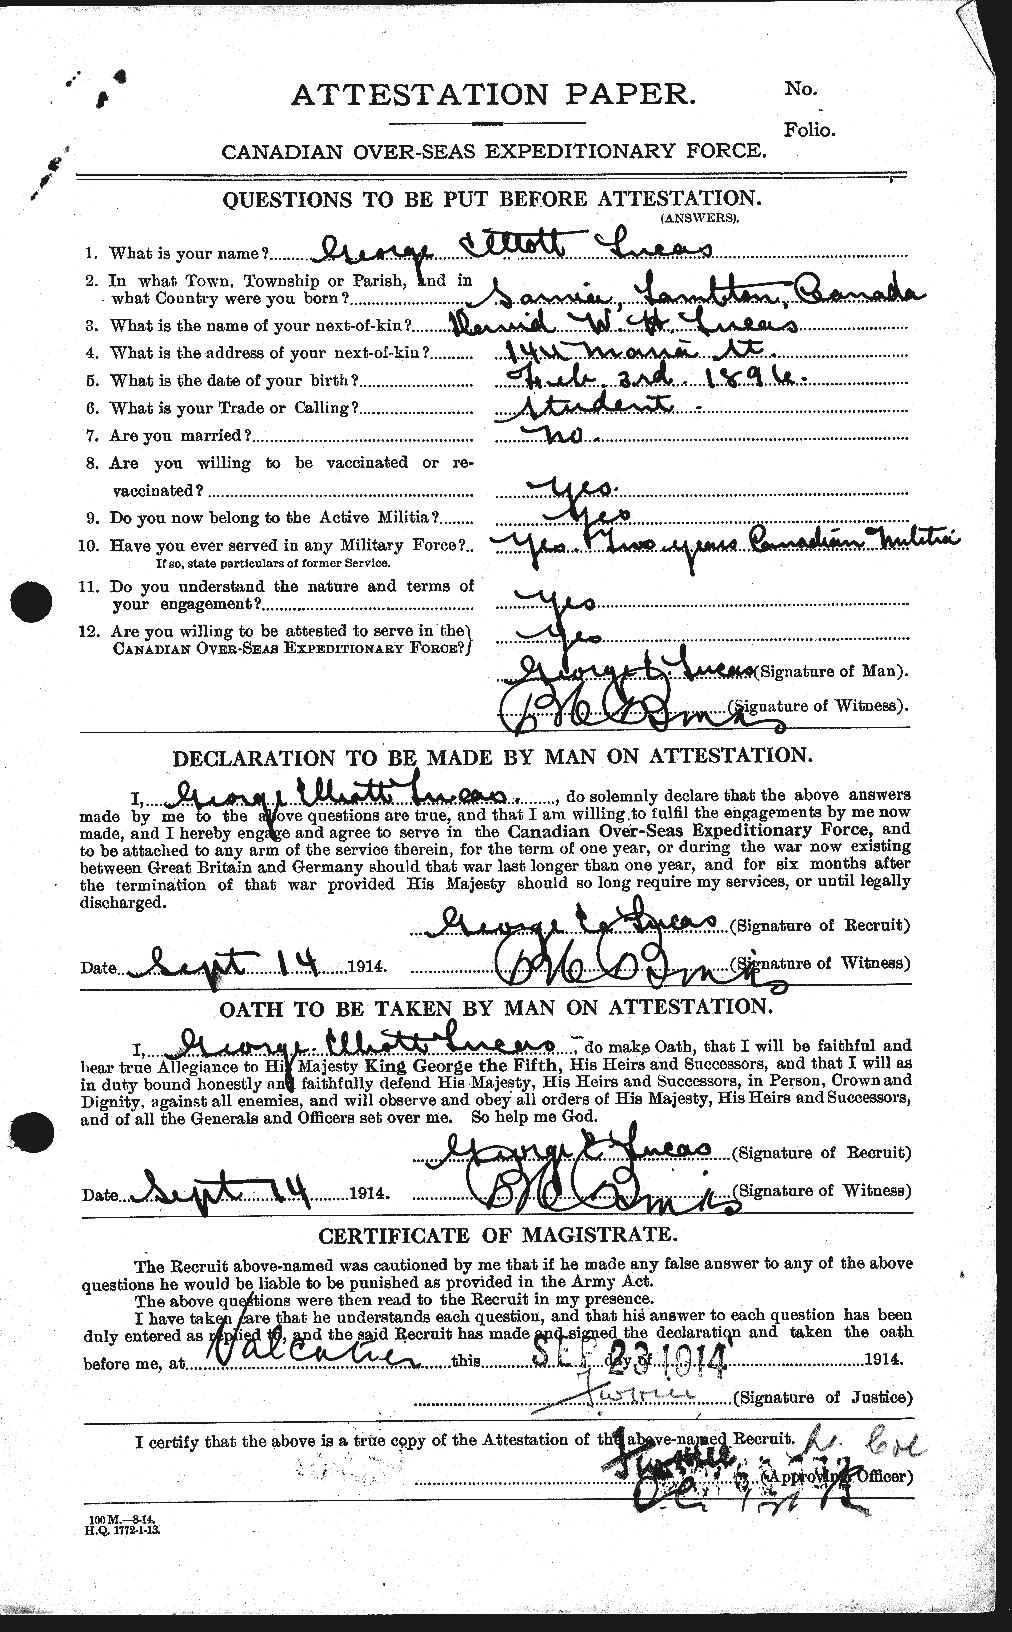 ATTESTATION PAPER.
No.
Folio.
CANADIAN OVER-SEAS EXPEDITIONARY FORCE.
QUESTIONS TO BE PUT BEFORE ATTESTATION.
(ANSWERS).
1. What is your name? George Elliott Lucas
2. In what Town, Township or Parish, and in
what Country were you born? Sarnia, Lambton, Canada
3. What is the name of your next-of-kin? David W. H. Lucas
4. What is the address of your next-of-kin? 144 Maria St.
5. What is the date of your birth? Feb. 3rd. 1896.
6. What is your Trade or Calling? Student -
7. Are you married? no.
8. Are you willing to be vaccinated or re-
vaccinated? Yes.
9. Do you now belong to the Active Militia? Yes
10. Have you ever served in any Military Force? Yes. Two years Canadian Militia
If so, state particulars of former Service.
11. Do you understand the nature and terms of
your engagement? Yes
12. Are you willing to be attested to serve in the
CANADIAN OVER-SEAS EXPEDITIONARY FORCE? Yes
George E. Lucas (Signature of Man).
(Signature of Witness).
DECLARATION TO BE MADE BY MAN ON ATTESTATION.
I, George Elliott Lucas, do solemnly declare that the above answers
made by me to the above questions are true, and that I am willing to fulfil the engagements by me now
made, and I hereby engage and agree to serve in the Canadian Over-Seas Expeditionary Force, and
to be attached to any arm of the service therein, for the term of one year, or during the war now existing
between Great Britain and Germany should that war last longer than one year, and for six months after
the termination of that war provided His Majesty should so long require my services, or until legally
discharged.
George E. Lucas (Signature of Recruit)
Date Sept 14 1914. (Signature of Witness)
OATH TO BE TAKEN BY MAN ON ATTESTATION.
I, George Elliott Lucas, do make Oath, that I will be faithful and
bear true Allegiance to His Majesty King George the Fifth, His Heirs and Successors, and that I will as
in duty bound honestly and faithfully defend His Majesty, His Heirs and Successors, in Person, Crown and
Dignity, against all enemies, and will observe and obey all orders of His Majesty, His Heirs and Successors,
and of all the Generals and Officers set over me. So help me God.
George E. Lucas (Signature of Recruit)
Date Sept 14 1914. (Signature of Witness)
CERTIFICATE OF MAGISTRATE.
The Recruit above-named was cautioned by me that if he made any false answer to any of the above
questions he would be liable to be punished as provided in the Army Act.
The above questions were then read to the Recruit in my presence.
I have taken care that he understands each question, and that his answer to each question has been
duly entered as replied to, and the said Recruit has made and signed the declaration and taken the oath
before me, at Valcartier this SEP 23 1914 day of 1914.
(Signature of Justice)
I certify that the above is a true copy of the Attestation of the above-named Recruit.
L. Col
(Approving Officer)
100 M.—8-14.
H.Q. 1772-1-13.